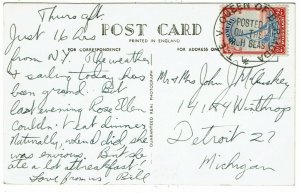 Thurs aft.
POST CARD
PRINTED IN ENGLAND
FOR CORRESPONDENCE
FOR ADDRESS ONLY
Just 16 hrs
from N.Y. The weather
& sailing today has
been grand. But
last evening Rose Ellen
couldn't eat dinner
Naturally, and did she
was furious. But she
ate a lot at breakfast.
Love from us Bill
T.E.V. QUEEN OF BERMUDA
POSTED
ON THE
HIGH SEAS
Mr & Mrs John J. McCluskey
14184 Winthrop
Detroit 27
Michigan